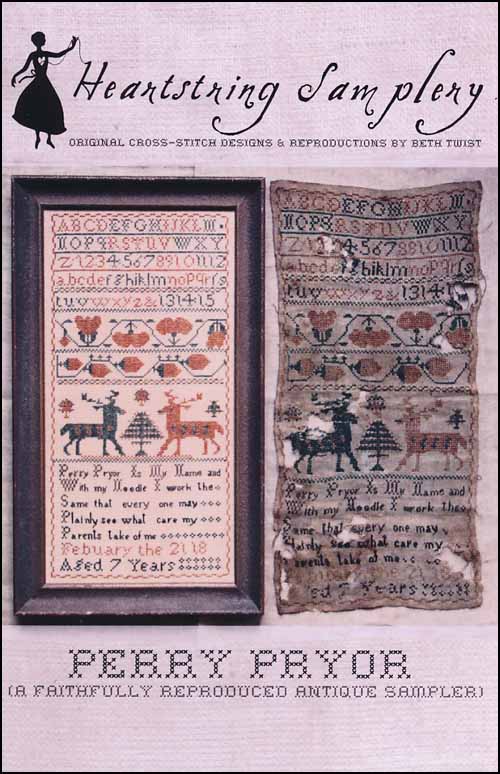 Heartstring Samplery
ORIGINAL CROSS-STITCH DESIGNS & REPRODUCTIONS BY BETH TWIST
ABCDEFGHIJKLM
NOPQRSTUVWXY
Z123456789101112
abcdefghiklmnopqrſs
tuvwxyz& 131415
Perry Pryor Is My Name and
With my Needle I work the
Same that every one may
Plainly see what care my
Parents take of me
Febuary the 2118
Aged 7 Years
ABCDEFGHIJKLM
NOPQRSTUVWXY
456789101112
abcdef hiklmnopqrſs
tuvwxyz& 131415
Perry Pryor Is My Name and
With my Needle I work the
Same that every one may
Plainly see what care my
Parents take of me
7 Years
PERRY PRYOR
(A FAITHFULLY REPRODUCED ANTIQUE SAMPLER)